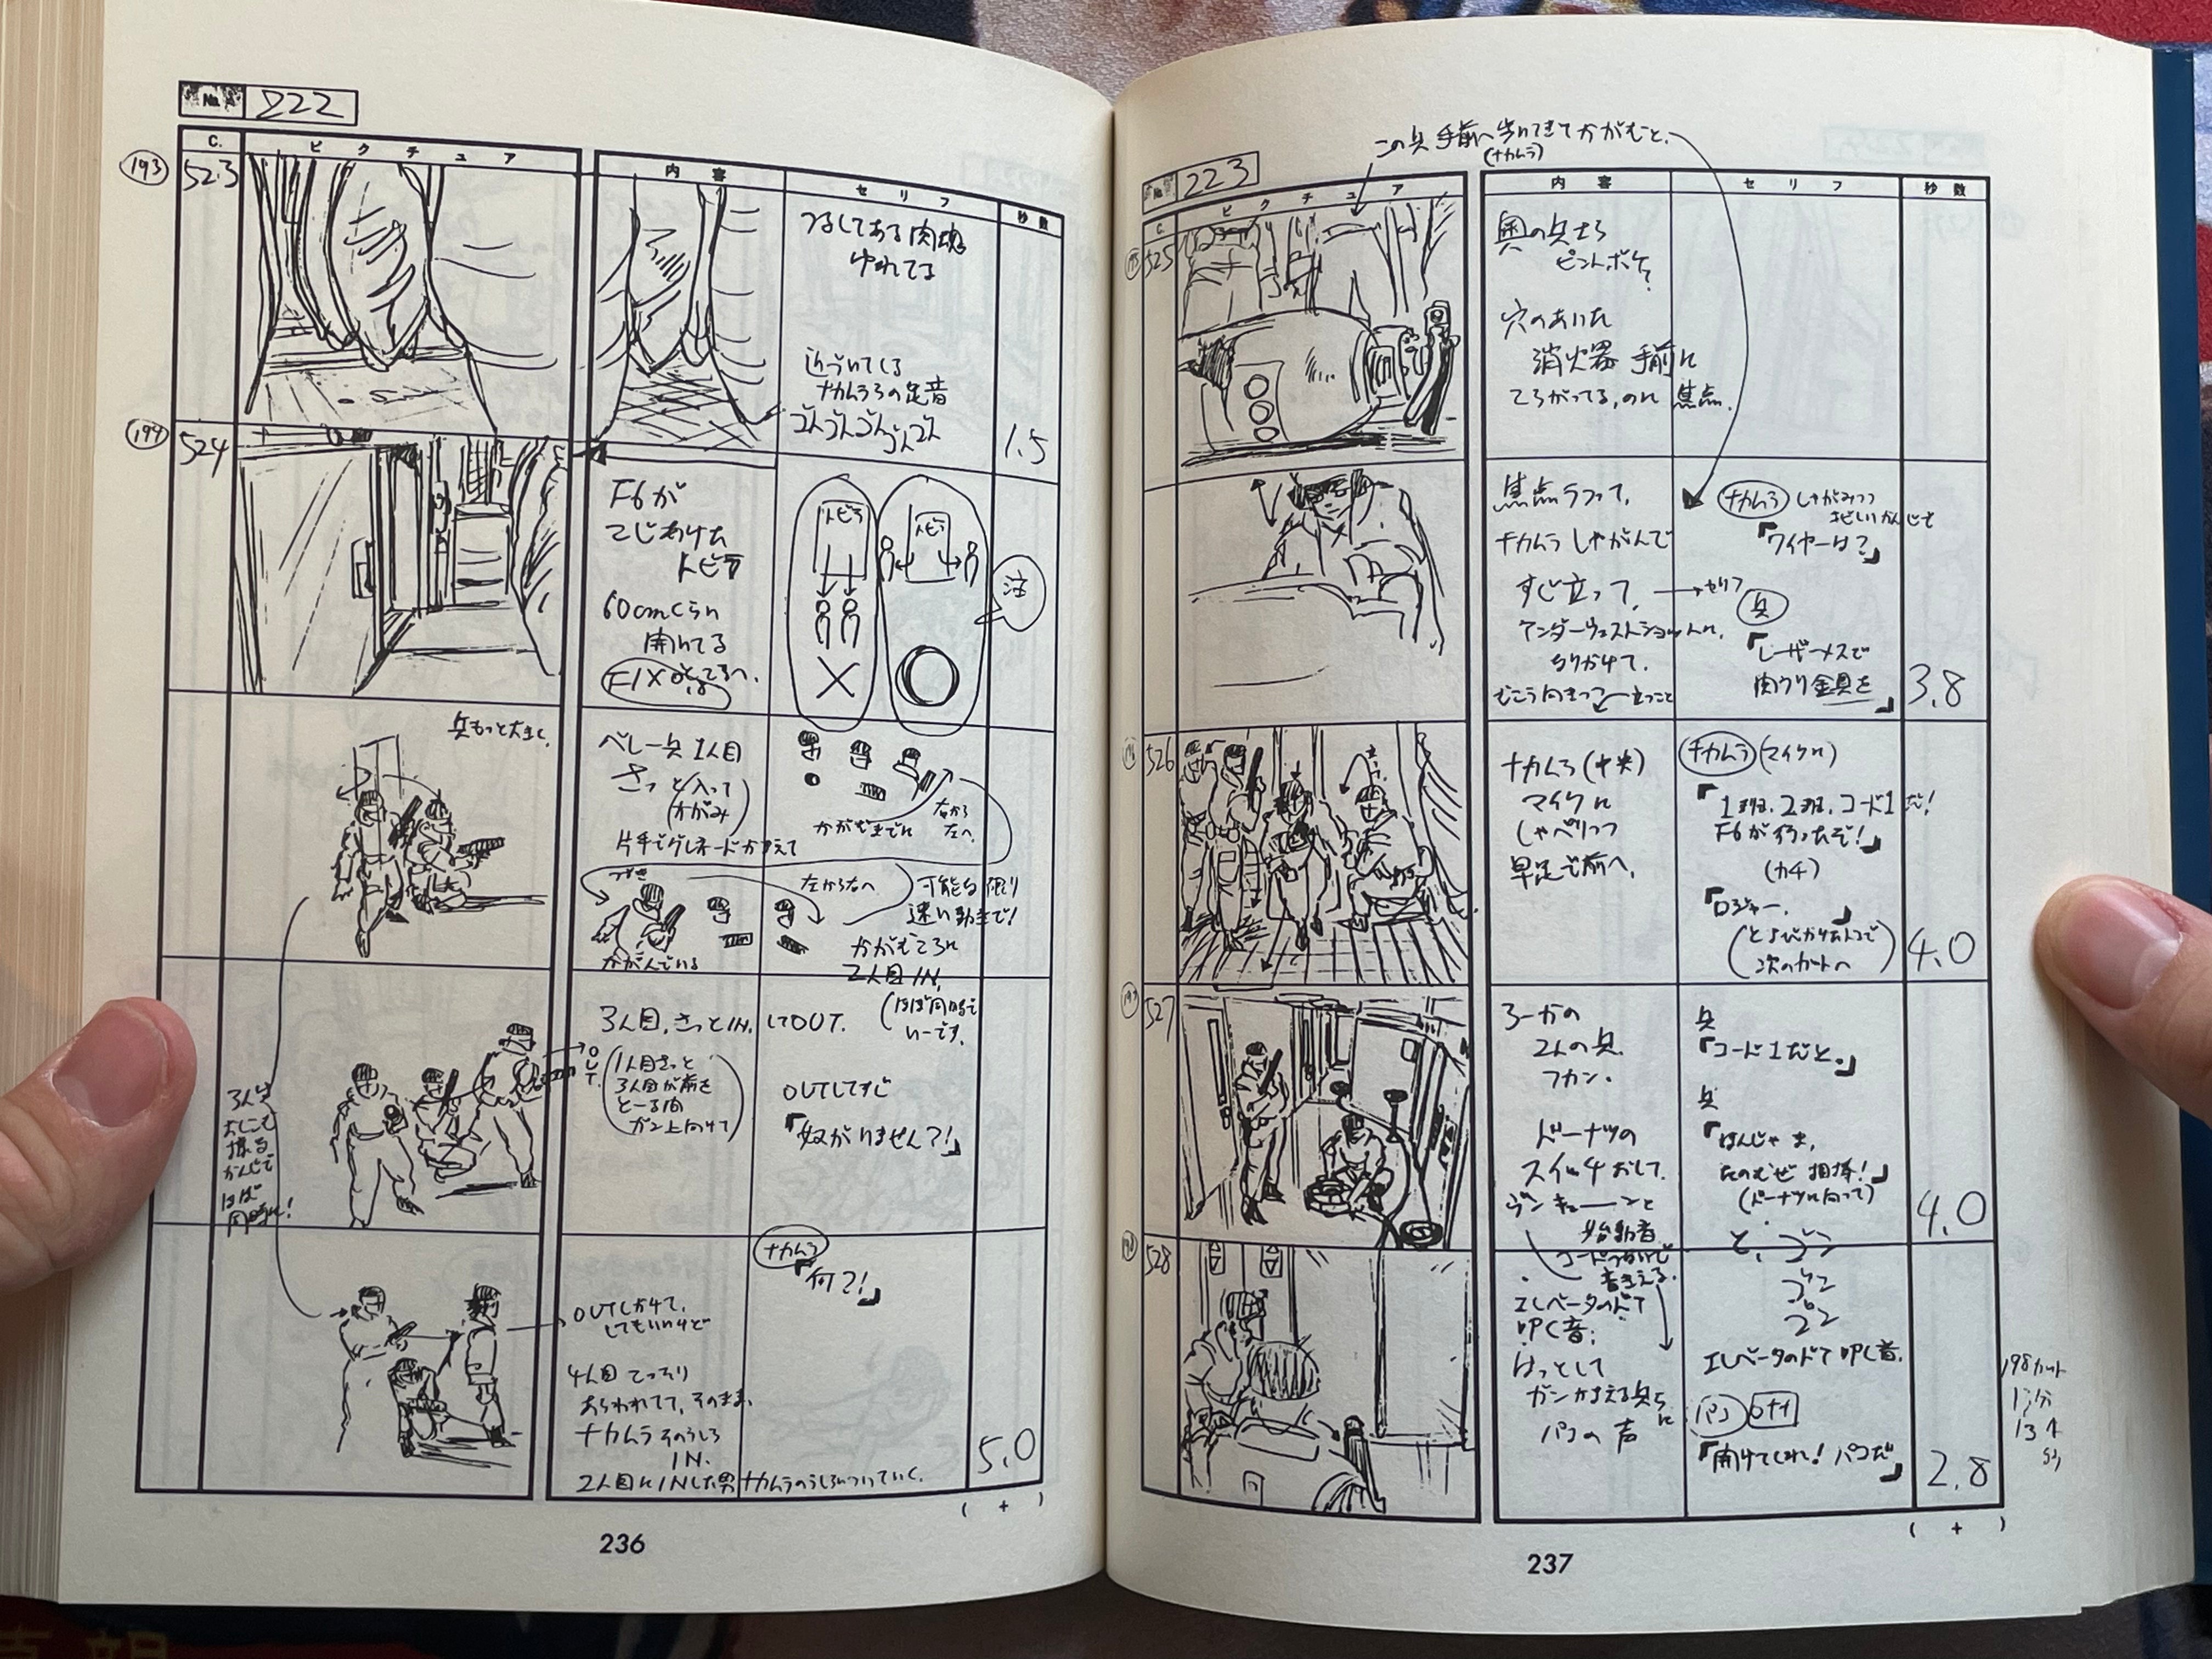 No. 222
C.
ピクチュア
内容
セリフ
秒数
193
523
つるしてある肉塊
ゆれてる
近づいてくる
ナカムラらの足音
1.5
194
524
F6が
こじあけた
トビラ
60cmくらい
開いてる
トビラ
トビラ
注
兵もっと大きく
ベレー兵1人目
さっと入って
(かがみ)
片手でグレネードかまえて
かがむまでに
右から
左へ
つづき
左から右へ
可能な限り
速い動きで!
かがんでいる
かがむころに
2人目IN.
(ほぼ同時で
いーです。
3人目、さっとIN.してOUT.
OUT
1人目さっと
3人目が前を
とーる間
ガン上向けて
OUTしてすぐ
「奴がいません?!」
3人は
ほぼ
ナカムラ
「何?!」
OUTしかけて、
してもいいけど
4人目
あらわれてて、そのまま、
ナカムラそのうしろ
IN.
2人目にINした男ナカムラのうしろについていく。
5.0
( + )
236
この兵手前へ歩いてきてかがむと、
(ナカムラ)
No. 223
C
ピクチュア
内容
セリフ
秒数
195
525
奥の兵士ら
ピントボケ
穴のあいた
消火器手前に
ころがってる、のに焦点。
焦点うつって、
ナカムラしゃがんで
すぐ立って、→セリフ
ナカムラ
しゃがみつつ
「ワイヤーは?」
兵
「レーザーメスで
肉つり金具を」
3.8
196
526
ナカムラ(中央)
マイクに
しゃべりつつ
早足で前へ。
ナカムラ(マイクに)
「1班、2班、コード1だ!
F6が行ったぞ!」
(カチ)
「ロジャー。」
次のカットへ
4.0
197
527
ろーかの
2人の兵。
フカン。
ドーナツの
スイッチおして。
始動音
兵
「コード1だと。」
兵
「はんじゃま、
たのむぜ相棒!」
(ドーナツに向って)
4.0
198
528
エレベータのドア
叩く音:
はっとして
ガンかまえる兵らに
パコの声
と、ゴン
ゴン
ゴン
エレベータのドア叩く音。
パコ OFF
「開けてくれ!パコだ」
2.8
198カット
( + )
237